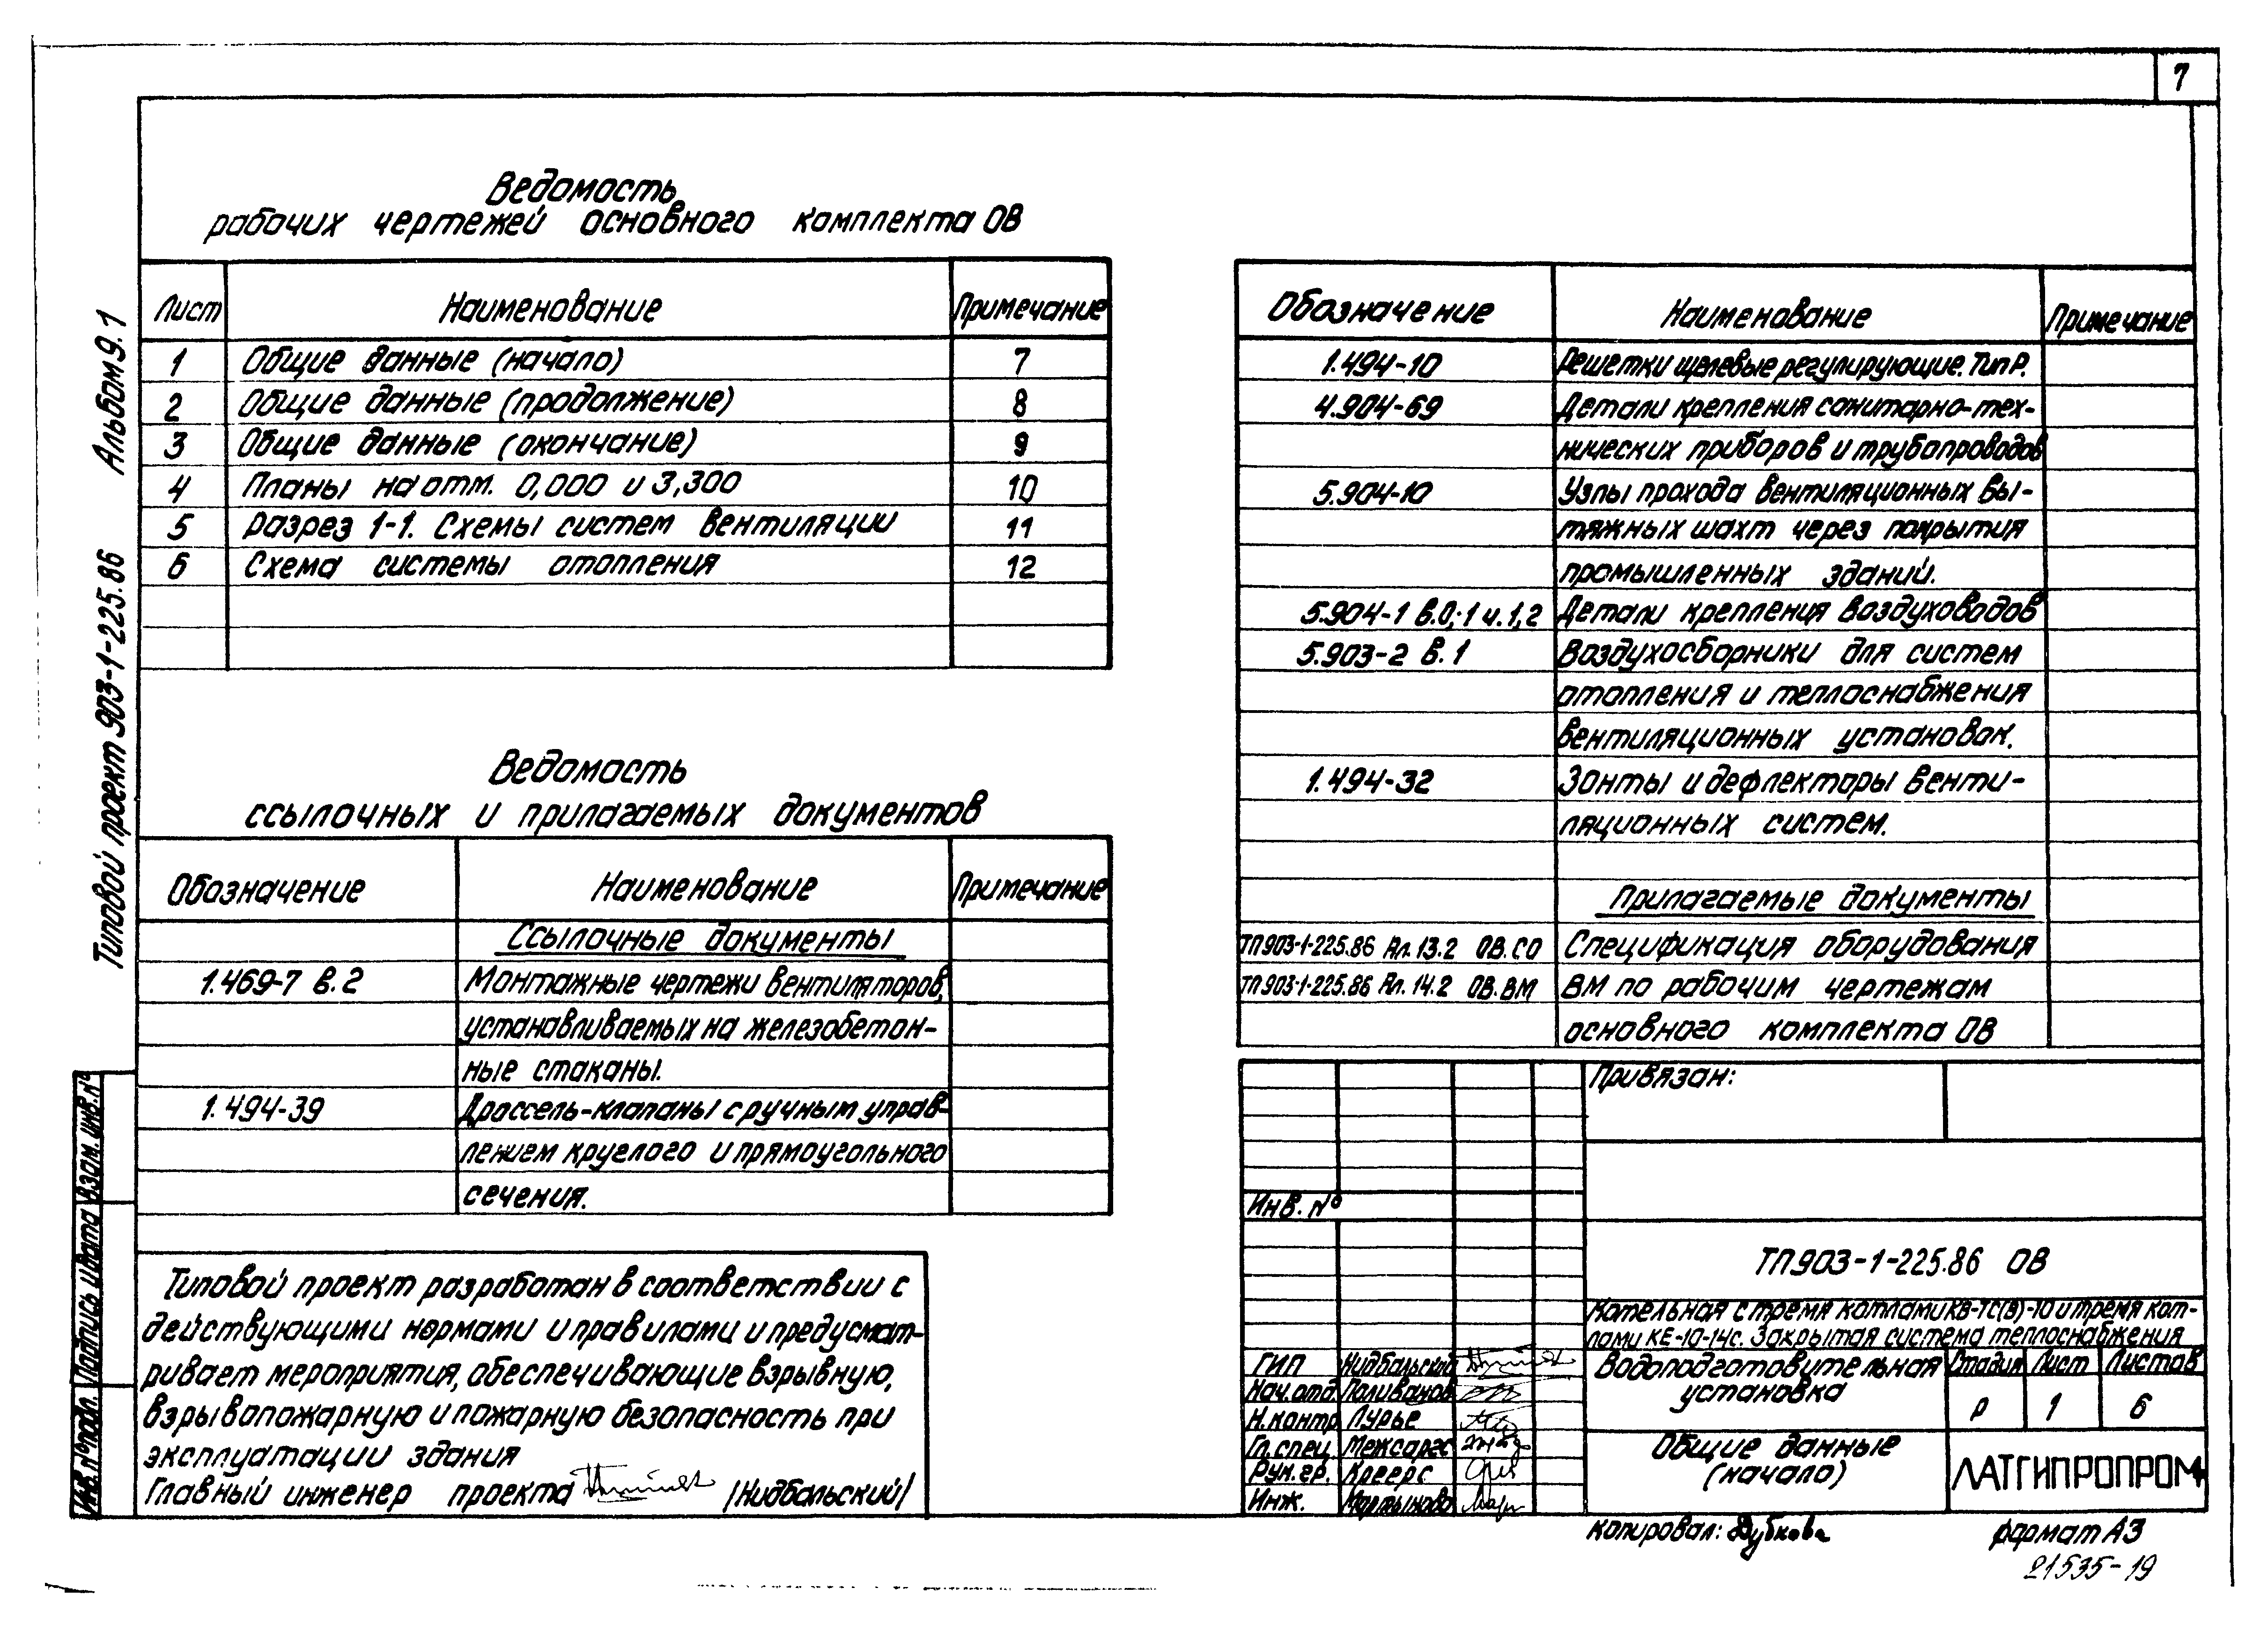 7
Ведомость
рабочих чертежей основного комплекта ОВ
Лист Наименование Примечание
1 Общие данные (начало) 7
2 Общие данные (продолжение) 8
3 Общие данные (окончание) 9
4 Планы на отм. 0,000 и 3,300 10
5 Разрез 1-1. Схемы систем вентиляции 11
6 Схема системы отопления 12
Ведомость
ссылочных и прилагаемых документов
Обозначение Наименование Примечание
Ссылочные документы
1.469-7 в.2 Монтажные чертежи вентиляторов,
устанавливаемых на железобетон-
ные стаканы.
1.494-39 Дроссель-клапаны с ручным управ-
лением круглого и прямоугольного
сечения.
Типовой проект разработан в соответствии с
действующими нормами и правилами и предусмат-
ривает мероприятия, обеспечивающие взрывную,
взрывопожарную и пожарную безопасность при
эксплуатации здания
Главный инженер проекта /Нидбальский/
Обозначение Наименование Примечание
1.494-10 Решетки щелевые регулирующие. Тип Р.
4.904-69 Детали крепления санитарно-тех-
нических приборов и трубопроводов
5.904-10 Узлы прохода вентиляционных вы-
тяжных шахт через покрытия
промышленных зданий.
5.904-1 в.0; 1 ч.1,2 Детали крепления воздуховодов
5.903-2 в.1 Воздухосборники для систем
отопления и теплоснабжения
вентиляционных установок.
1.494-32 Зонты и дефлекторы венти-
ляционных систем.
Прилагаемые документы
ТП903-1-225.86 Ал.13.2 ОВ.СО Спецификация оборудования
ТП903-1-225.86 Ал.14.2 ОВ.ВМ ВМ по рабочим чертежам
основного комплекта ОВ
Привязан:
Инв. №
ТП903-1-225.86 ОВ
Котельная с тремя котлами КВ-ТС(В)-10 и тремя кот-
лами КЕ-10-14с. Закрытая система теплоснабжения
ГИП Нидбальский
Нач.отд. Поливанов
Н.контр Лурье
Гл.спец. Межсаргс
Рук.гр. Креерс
Инж. Мартынова
Водоподготовительная
установка
Стадия Лист Листов
Р 1 6
Общие данные
(начало)
ЛАТГИПРОПРОМ
Копировал: Дубкова
формат А3
21535-19
Типовой проект 903-1-225.86 Альбом 9.1
Инв. № подл. Подпись и дата Взам. инв. №